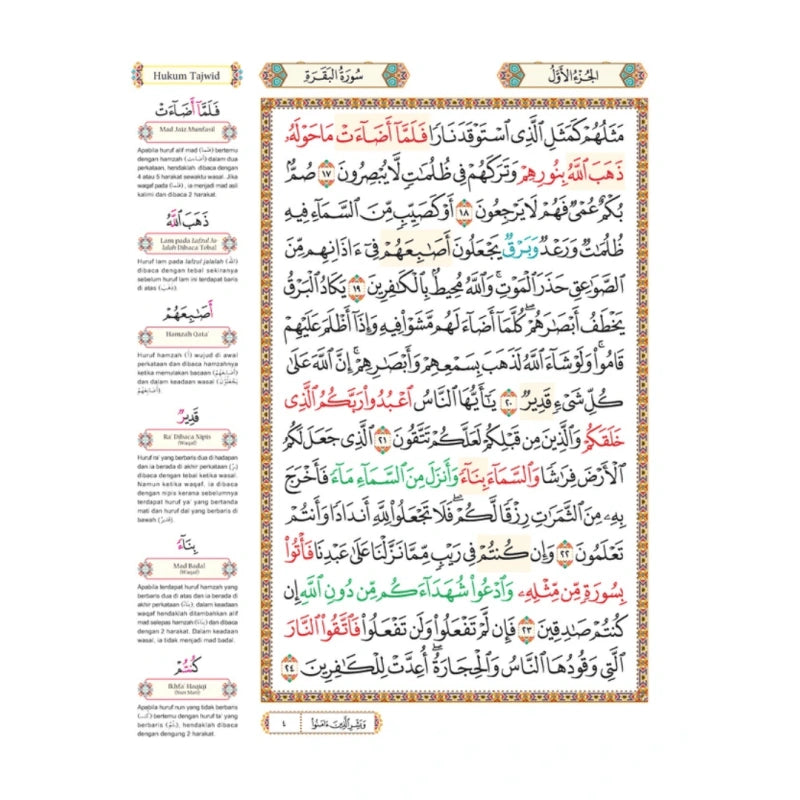 Hukum Tajwid
سُورَةُ البَقَرَةِ
الجُزءُ الأَوَّلُ
فَلَمَّآ أَضَآءَتْ
Mad Jaiz Munfasil
Apabila huruf alif mad (فَلَمَّآ) bertemu
dengan hamzah (أَضَآءَتْ) dalam dua
perkataan, hendaklah dibaca dengan
4 atau 5 harakat sewaktu wasal. Jika
waqaf pada (فَلَمَّآ), ia menjadi mad asli
kalimi dan dibaca 2 harakat.
ذَهَبَ ٱللَّهُ
Lam pada Lafzul Ja-
lalah Dibaca Tebal
Huruf lam pada lafzul jalalah (ٱللَّه)
dibaca dengan tebal sekiranya
sebelum huruf lam ini terdapat baris
di atas (ذَهَبَ).
أَصَـٰبِعَهُمْ
Hamzah Qata'
Huruf hamzah (أ) wujud di awal
perkataan dan dibaca hamzahnya
ketika memulakan bacaan (أَصَـٰبِعَهُمْ)
dan dalam keadaan wasal (يَجْعَلُونَ
أَصَـٰبِعَهُمْ).
قَدِيرٌ
Ra' Dibaca Nipis
(Waqaf)
Huruf ra' yang berbaris dua di hadapan
dan ia berada di akhir perkataan (رٌ)
dibaca dengan tebal ketika wasal.
Namun ketika waqaf, ia dibaca
dengan nipis kerana sebelumnya
terdapat huruf ya' yang bertanda
mati dan huruf dal yang berbaris di
bawah (قَدِيرٌ).
بِنَآءً
Mad Badal
(Waqaf)
Apabila terdapat huruf hamzah yang
berbaris dua di atas dan ia berada di
akhir perkataan (بِنَآءً), dalam keadaan
waqaf hendaklah ditambahkan alif
mad selepas hamzah (بِنَآءَا) dan dibaca
dengan 2 harakat. Dalam keadaan
wasal, ia tidak menjadi mad badal.
كُنتُمْ
Ikhfa' Haqiqi
(Nun Mati)
Apabila huruf nun yang tidak berbaris
(كُنـ) bertemu dengan huruf ta' yang
berbaris (ـتُمْ), hendaklah dibaca
dengan dengung 2 harakat.
مَثَلُهُمْ كَمَثَلِ ٱلَّذِى ٱسْتَوْقَدَ نَارًا فَلَمَّآ أَضَآءَتْ مَا حَوْلَهُۥ
ذَهَبَ ٱللَّهُ بِنُورِهِمْ وَتَرَكَهُمْ فِى ظُلُمَـٰتٍ لَّا يُبْصِرُونَ ١٧ صُمٌّۢ
بُكْمٌ عُمْىٌ فَهُمْ لَا يَرْجِعُونَ ١٨ أَوْ كَصَيِّبٍ مِّنَ ٱلسَّمَآءِ فِيهِ
ظُلُمَـٰتٌ وَرَعْدٌ وَبَرْقٌ يَجْعَلُونَ أَصَـٰبِعَهُمْ فِىٓ ءَاذَانِهِم مِّنَ
ٱلصَّوَٰعِقِ حَذَرَ ٱلْمَوْتِ ۚ وَٱللَّهُ مُحِيطٌۢ بِٱلْكَـٰفِرِينَ ١٩ يَكَادُ ٱلْبَرْقُ
يَخْطَفُ أَبْصَـٰرَهُمْ ۖ كُلَّمَآ أَضَآءَ لَهُم مَّشَوْا۟ فِيهِ وَإِذَآ أَظْلَمَ عَلَيْهِمْ
قَامُوا۟ ۚ وَلَوْ شَآءَ ٱللَّهُ لَذَهَبَ بِسَمْعِهِمْ وَأَبْصَـٰرِهِمْ ۚ إِنَّ ٱللَّهَ عَلَىٰ
كُلِّ شَىْءٍ قَدِيرٌ ٢٠ يَـٰٓأَيُّهَا ٱلنَّاسُ ٱعْبُدُوا۟ رَبَّكُمُ ٱلَّذِى
خَلَقَكُمْ وَٱلَّذِينَ مِن قَبْلِكُمْ لَعَلَّكُمْ تَتَّقُونَ ٢١ ٱلَّذِى جَعَلَ لَكُمُ
ٱلْأَرْضَ فِرَٰشًا وَٱلسَّمَآءَ بِنَآءً وَأَنزَلَ مِنَ ٱلسَّمَآءِ مَآءً فَأَخْرَجَ
بِهِۦ مِنَ ٱلثَّمَرَٰتِ رِزْقًا لَّكُمْ ۖ فَلَا تَجْعَلُوا۟ لِلَّهِ أَندَادًا وَأَنتُمْ
تَعْلَمُونَ ٢٢ وَإِن كُنتُمْ فِى رَيْبٍ مِّمَّا نَزَّلْنَا عَلَىٰ عَبْدِنَا فَأْتُوا۟
بِسُورَةٍ مِّن مِّثْلِهِۦ وَٱدْعُوا۟ شُهَدَآءَكُم مِّن دُونِ ٱللَّهِ إِن
كُنتُمْ صَـٰدِقِينَ ٢٣ فَإِن لَّمْ تَفْعَلُوا۟ وَلَن تَفْعَلُوا۟ فَٱتَّقُوا۟ ٱلنَّارَ
ٱلَّتِى وَقُودُهَا ٱلنَّاسُ وَٱلْحِجَارَةُ ۖ أُعِدَّتْ لِلْكَـٰفِرِينَ ٢٤
وَبَشِّرِ ٱلَّذِينَ ءَامَنُوا۟
٤